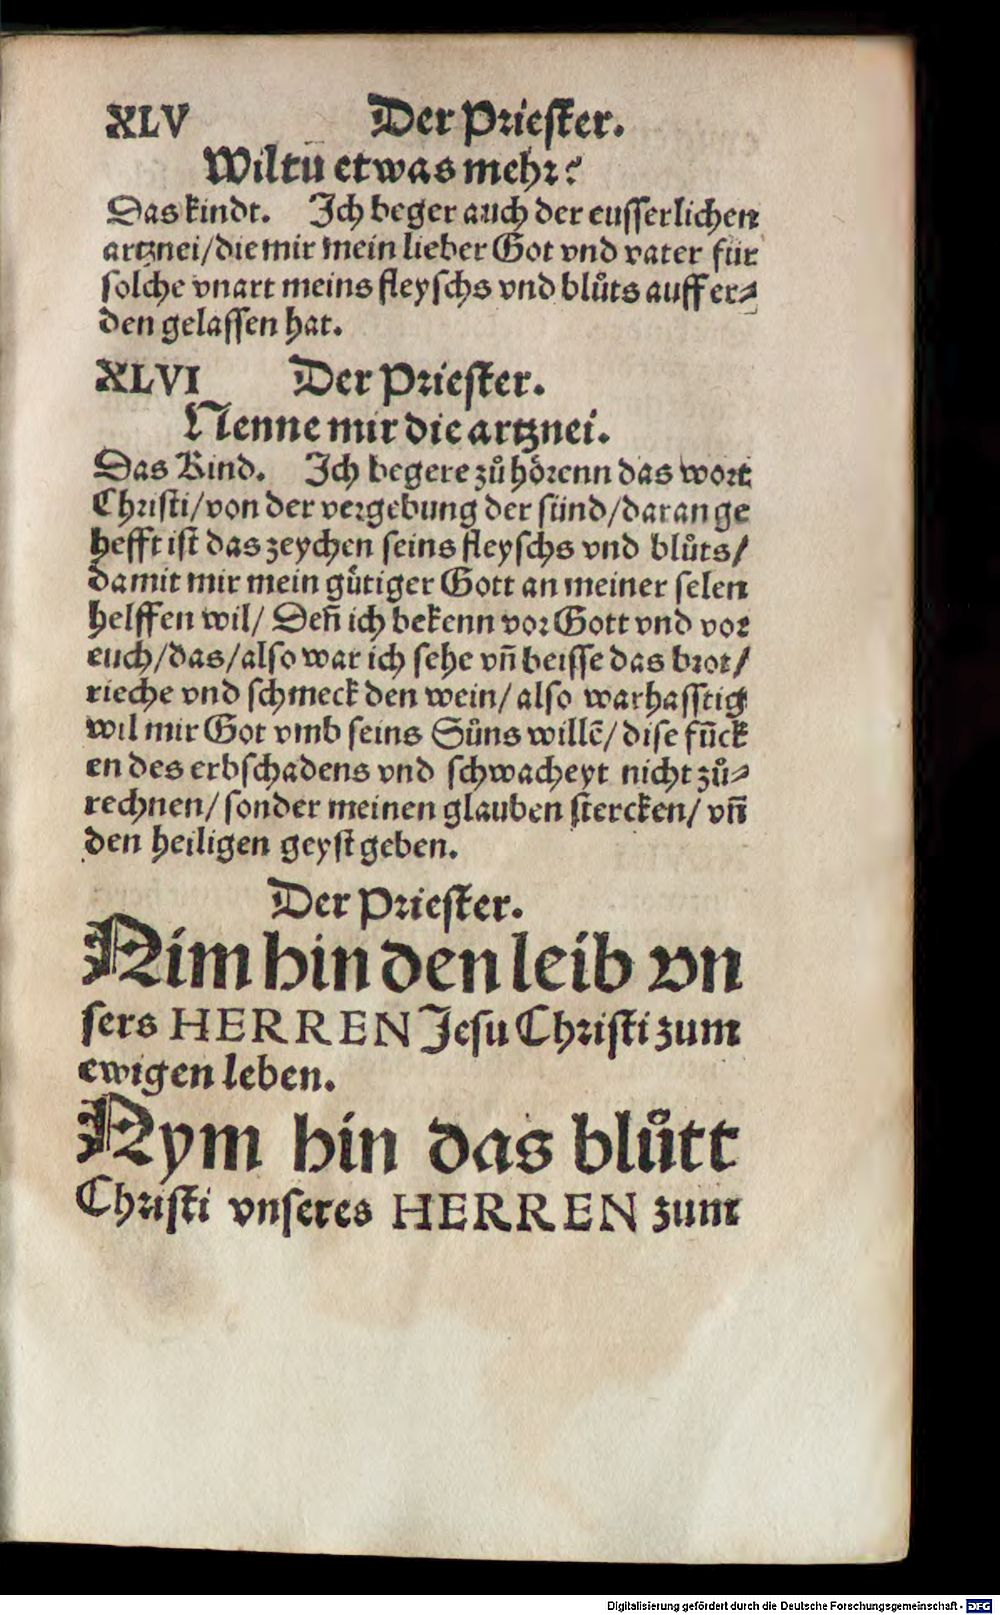 XLV Der Priester.
Wiltu etwas mehr?
Das kindt. Ich beger auch der eusserlichen
artznei/die mir mein lieber Got vnd vater für
solche vnart meins fleyschs vnd blůts auff er⸗
den gelassen hat.
XLVI Der Priester.
Nenne mir die artznei.
Das Kind. Ich begere zů hörenn das wort
Christi/von der vergebung der sünd/daran ge
hefft ist das zeychen seins fleyschs vnd blůts/
damit mir mein gütiger Gott an meiner selen
helffen wil/ Deñ ich bekenn vor Gott vnd vor
euch/das/also war ich sehe vñ beisse das brot/
rieche vnd schmeck den wein/ also warhafftig
wil mir Got vmb seins Sůns willē/ dise fũck
en des erbschadens vnd schwacheyt nicht zů⸗
rechnen/ sonder meinen glauben stercken/ vñ
den heiligen geyst geben.
Der Priester.
Nim hin den leib vn
sers HERREN Jesu Christi zum
ewigen leben.
Nym hin das blůtt
Christi vnseres HERREN zum
Digitalisierung gefördert durch die Deutsche Forschungsgemeinschaft - DFG